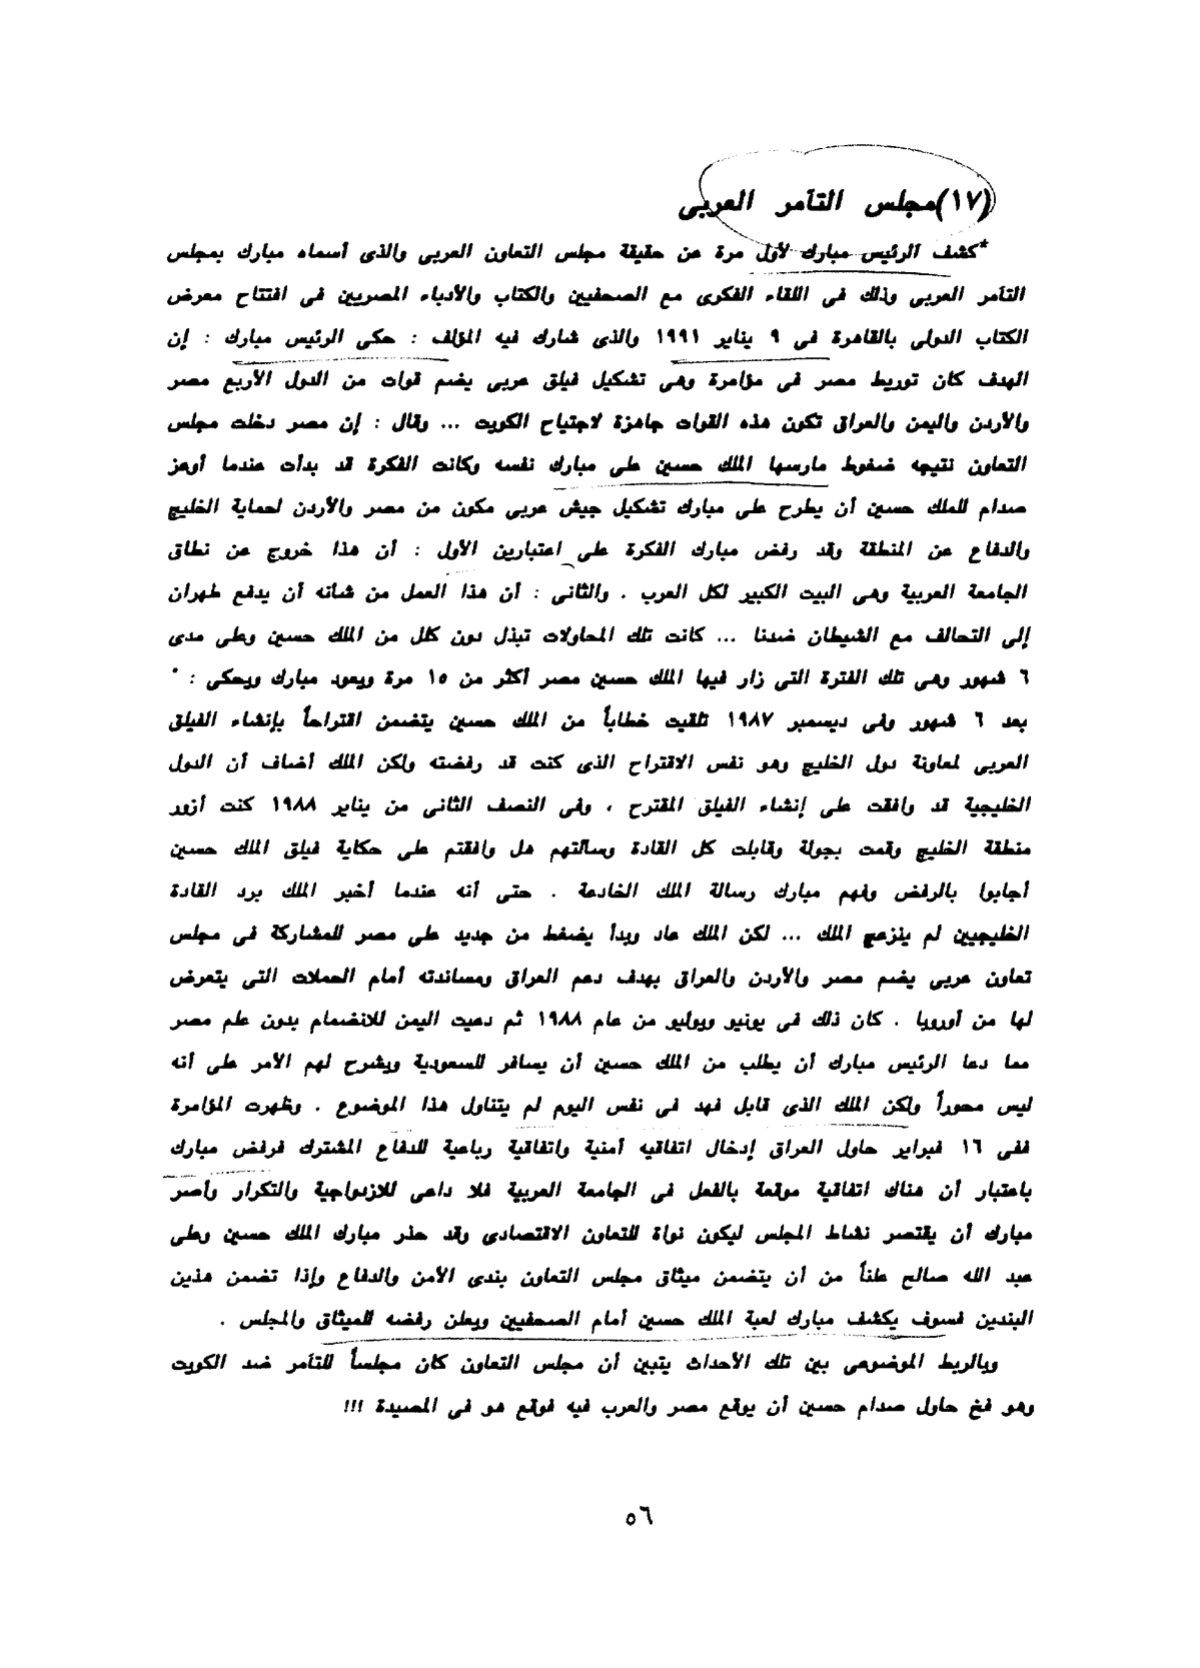 (١٧)مجلس التآمر العربى
*كشف الرئيس مبارك لأول مرة عن حقيقة مجلس التعاون العربى والذى أسماه مبارك بمجلس
التآمر العربى وذلك فى اللقاء الفكرى مع الصحفيين والكتاب والأدباء المصريين فى افتتاح معرض
الكتاب الدولى بالقاهرة فى ٩ يناير ١٩٩١ والذى شارك فيه المؤلف : حكى الرئيس مبارك : إن
الهدف كان توريط مصر فى مؤامرة وهى تشكيل فيلق عربى يضم قوات من الدول الأربع مصر
والأردن واليمن والعراق تكون هذه القوات جاهزة لاجتياح الكويت ... وقال : إن مصر دخلت مجلس
التعاون نتيجه ضغوط مارسها الملك حسين على مبارك نفسه وكانت الفكرة قد بدأت عندما أوعز
صدام للملك حسين أن يطرح على مبارك تشكيل جيش عربى مكون من مصر والأردن لحماية الخليج
والدفاع عن المنطقة وقد رفض مبارك الفكرة على اعتبارين الأول : أن هذا خروج عن نطاق
الجامعة العربية وهى البيت الكبير لكل العرب . والثانى : أن هذا العمل من شأنه أن يدفع طهران
إلى التحالف مع الشيطان ضدنا ... كانت تلك المحاولات تبذل دون كلل من الملك حسين وعلى مدى
٦ شهور وهى تلك الفترة التى زار فيها الملك حسين مصر أكثر من ١٥ مرة ويعود مبارك ويحكى : "
بعد ٦ شهور وفى ديسمبر ١٩٨٧ تلقيت خطاباً من الملك حسين يتضمن اقتراحاً بإنشاء الفيلق
العربى لمعاونة دول الخليج وهو نفس الاقتراح الذى كنت قد رفضته ولكن الملك أضاف أن الدول
الخليجية قد وافقت على إنشاء الفيلق المقترح ، وفى النصف الثانى من يناير ١٩٨٨ كنت أزور
منطقة الخليج وقمت بجولة وقابلت كل القادة وسألتهم هل وافقتم على حكاية فيلق الملك حسين
أجابوا بالرفض وفهم مبارك رسالة الملك الخادعة . حتى أنه عندما أخبر الملك برد القادة
الخليجيين لم ينزعج الملك ... لكن الملك عاد وبدأ يضغط من جديد على مصر للمشاركة فى مجلس
تعاون عربى يضم مصر والأردن والعراق بهدف دعم العراق ومساندته أمام الحملات التى يتعرض
لها من أوروبا . كان ذلك فى يونيو ويوليو من عام ١٩٨٨ ثم دعيت اليمن للانضمام بدون علم مصر
مما دعا الرئيس مبارك أن يطلب من الملك حسين أن يسافر للسعودية ويشرح لهم الأمر على أنه
ليس محوراً ولكن الملك الذى قابل فهد فى نفس اليوم لم يتناول هذا الموضوع . وظهرت المؤامرة
ففى ١٦ فبراير حاول العراق إدخال اتفاقيه أمنية واتفاقية رباعية للدفاع المشترك فرفض مبارك
باعتبار أن هناك اتفاقية موقعة بالفعل فى الجامعة العربية فلا داعى للازدواجية والتكرار وأصر
مبارك أن يقتصر نشاط المجلس ليكون نواة للتعاون الاقتصادى وقد حذر مبارك الملك حسين وعلى
عبد الله صالح علناً من أن يتضمن ميثاق مجلس التعاون بندى الأمن والدفاع وإذا تضمن هذين
البندين فسوف يكشف مبارك لعبة الملك حسين أمام الصحفيين ويعلن رفضه للميثاق والمجلس .
وبالربط الموضوعى بين تلك الأحداث يتبين أن مجلس التعاون كان مجلساً للتآمر ضد الكويت
وهو فخ حاول صدام حسين أن يوقع مصر والعرب فيه فوقع هو فى المصيدة !!!
٥٦